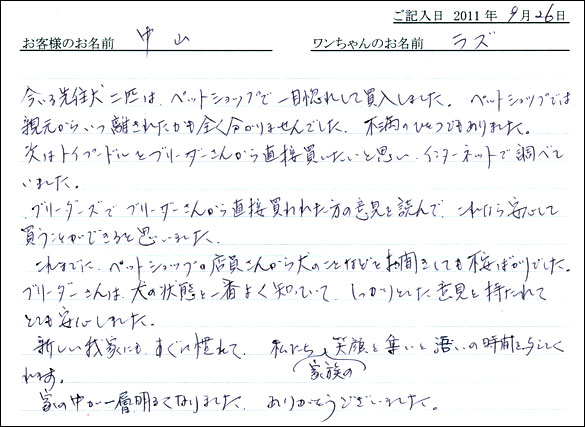 ご記入日 2011 年 9 月 26 日
お客様のお名前 中山 ワンちゃんのお名前 ラズ
今いる先住犬二匹は、ペットショップで一目惚れして買入しました。ペットショップでは
親元からいつ離されたかも全く分かりませんでした。不満のひとつでもありました。
次はトイプードルをブリーダーさんから直接買いたいと思い、インターネットで調べて
いました。
ブリーダーズでブリーダーさんから直接買われた方の意見を読んで、これなら安心して
買うことができると思いました。
これまでに、ペットショップの店員さんから犬のことなどをお聞きしても ばかりでした。
ブリーダーさんは、犬の状態を一番よく知っていて、しっかりとした意見を持たれて
とても安心しました。
新しい我家にもすぐに慣れて、私たち家族の笑顔と集いと語いの時間を与えてく
れます。
家の中が一層明るくなりました。ありがとうございました。